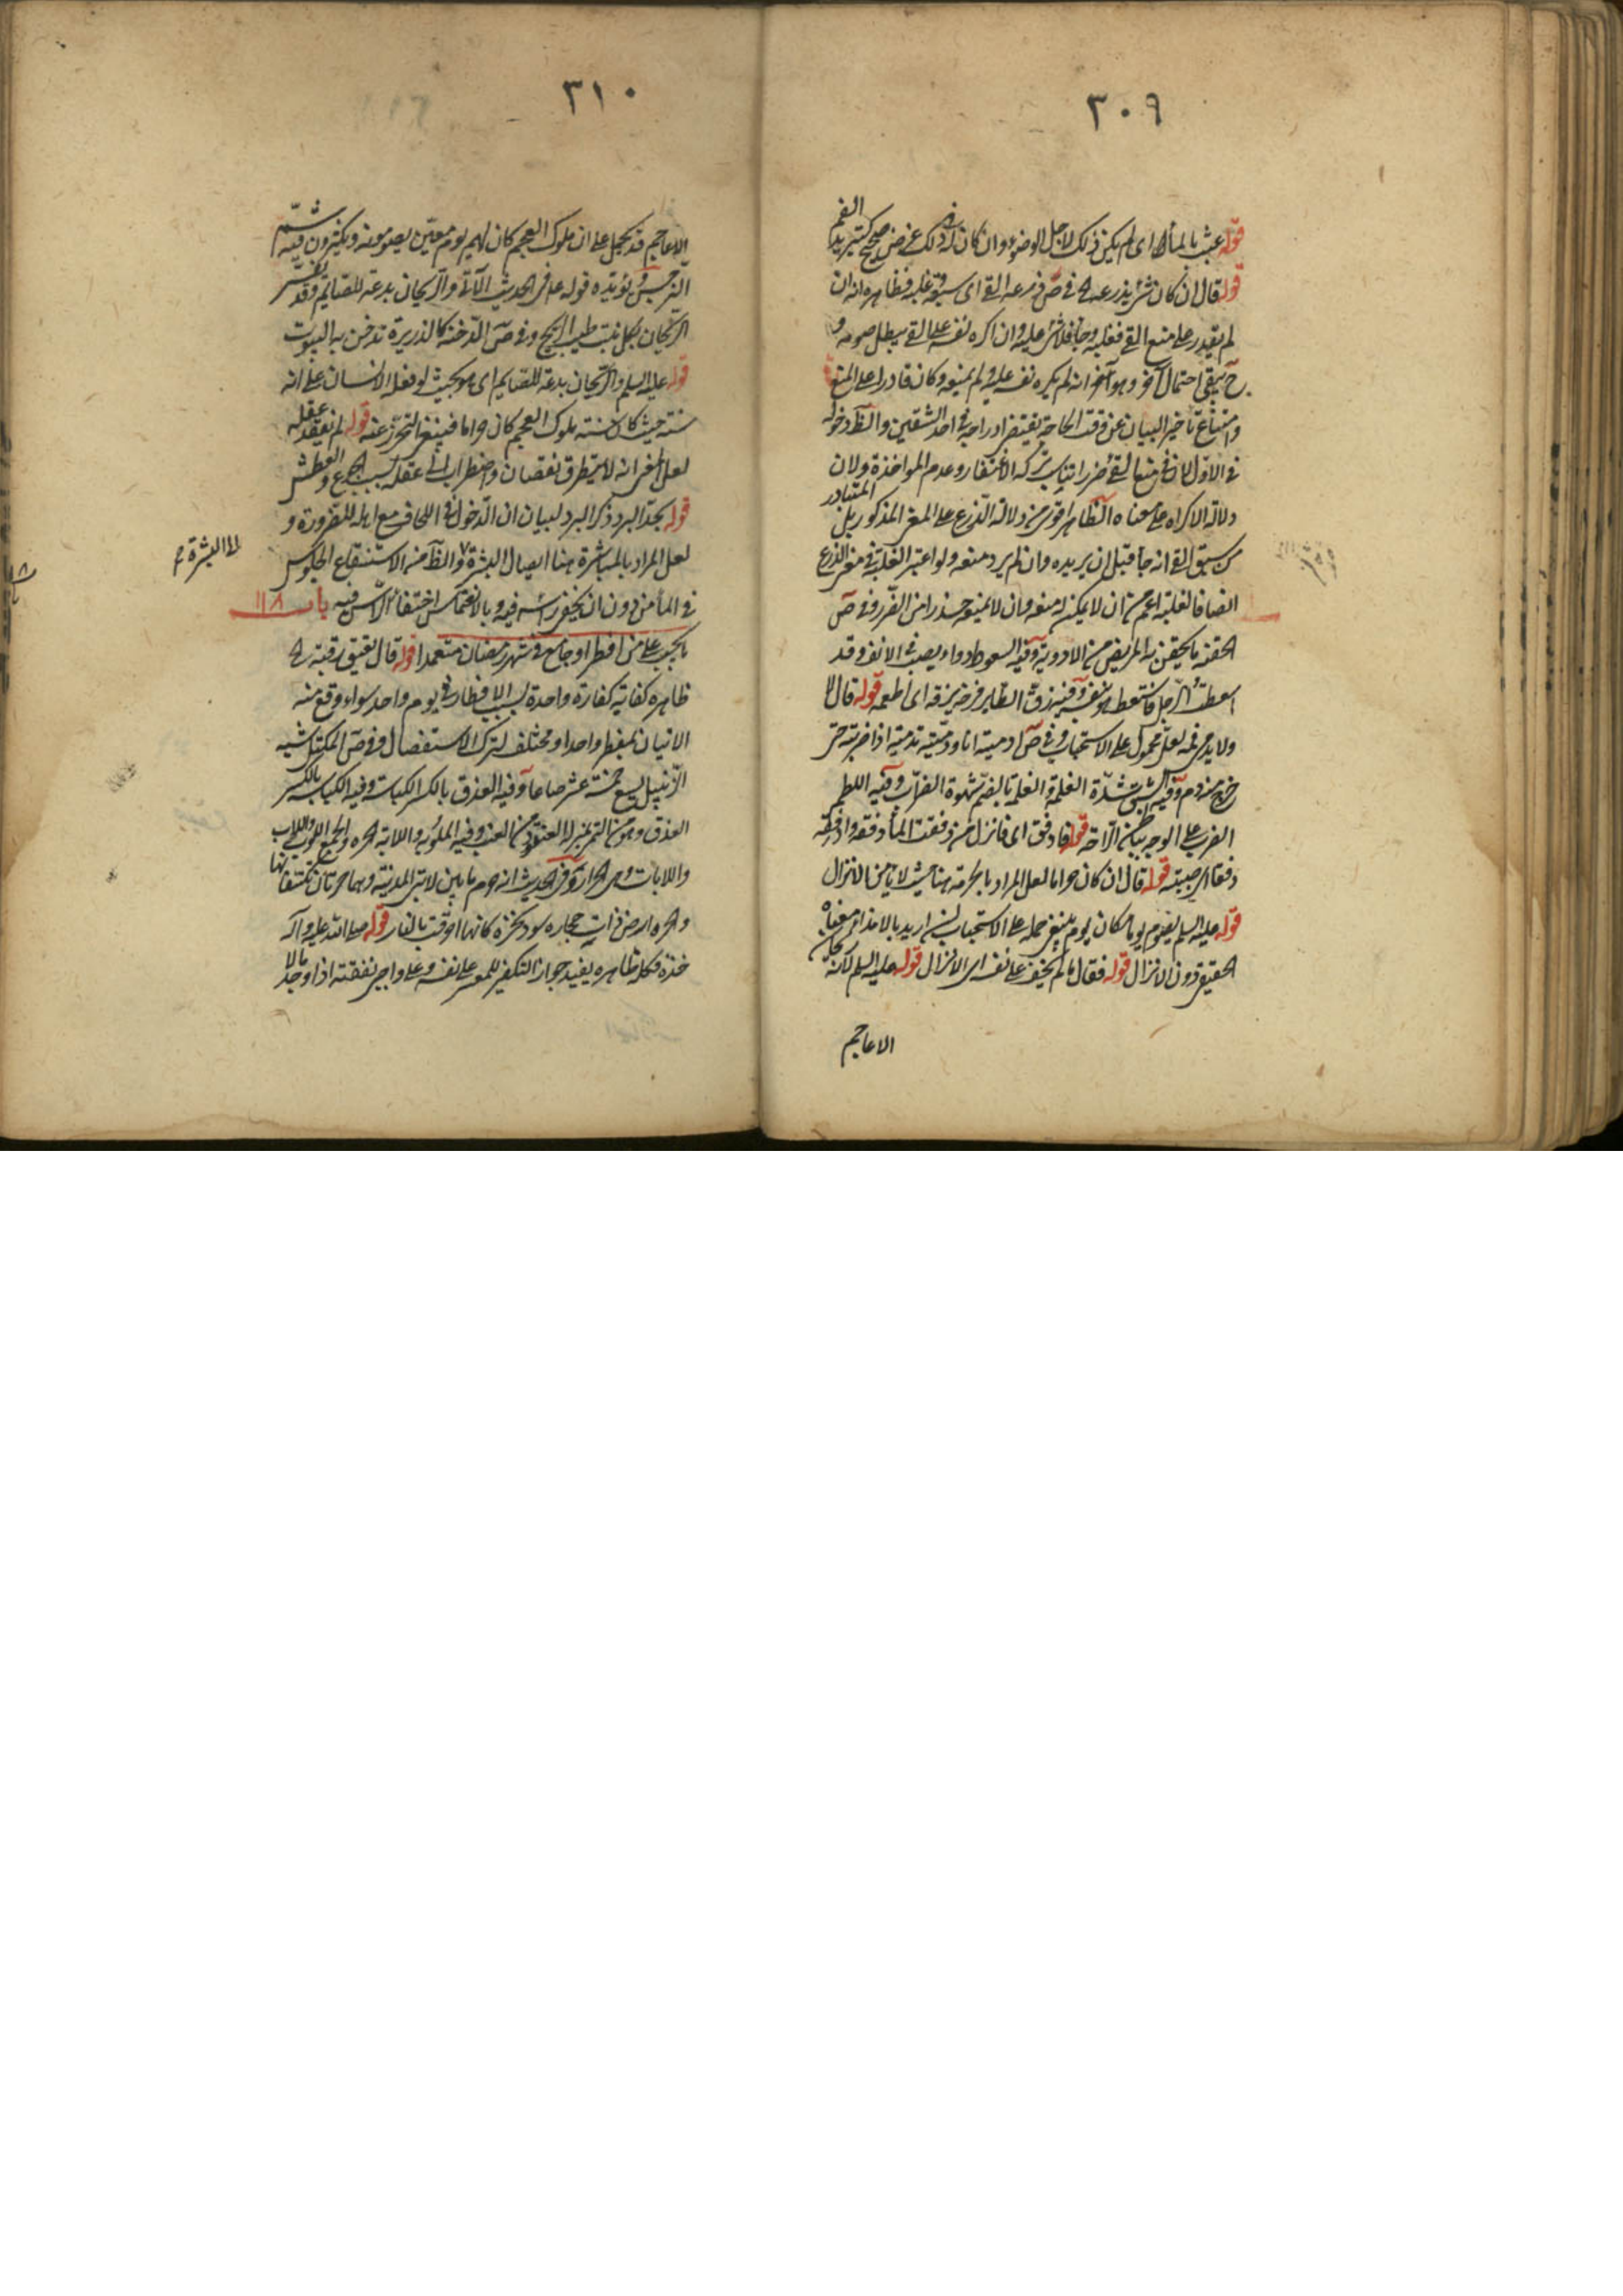 ٣٠٩
قوله عبث بالماء اى لم يكن ذلك لاجل الوضوء وان كان له فى ذلك غرض صحيح كتبريد الفم
قوله قال ان كان شئ يذرعه اه فى ص ذرعه القئ اى سبقه وغلبه فظاهره انه ان
لم يقدر على منع القئ فغلبه وجاء فلا شئ عليه وان اكره نفسه على القئ يبطل صومه و
ح يبقى احتمال آخر وهو انه لم يكره نفسه عليه ولم يمنعه وكان قادرا على المنع
وامتناع تأخير البيان عن وقت الحاجة يقتضى ادراجه فى احد الشقين والظ دخوله
فى الاول لان فى منع القئ ضررا يناسب تركه الاغتفار وعدم المؤاخذة ولان
دلالة الاكراه على معناه الظاهر اقوى من دلالة الذرع على المعنى المذكور بل المتبادر
من سبق القئ انه جاء قبل ان يريده وان لم يرد منعه ولو اعتبر الغلبة فى معنى الذرع
ايضا فالغلبة اعم من ان لا يمكنه منعه وان لا يمنعه حذرا من الضرر وفى ص
الحقنة ما يحقن به المريض من الادوية وفيه السعوط دواء يصب فى الانف وقد
اسعطت الرجل فاستعط هو بنفسه وفيه زق الطاير فرخه يزقه اى اطعمه قوله قال لا
ولا يدمى فمه لعله محمول على الاستحباب وفى ص ادميته انا ودميته تدمية اذا ضربته حتى
خرج منه دم وفيه الشبق شدة الغلمة والغلمة بالضم شهوة الضراب وفيه اللطم
الضرب على الوجه بباطن الراحة قوله فادفق اى فانزل من دفقت الماء ادفقه وادفقه
دفقا اى صببته قوله قال ان كان حراما لعل المراد بالحرمة هنا حيث لا يأمن الانزال
قوله عليه السلم يصوم يوما مكان يوم ينبغى حمله على الاستحباب ان اريد بالامذاء معناه
الحقيقى دون الانزال قوله فقال ما لم يخف على نفسه اى الانزال قوله عليه السلم لانه ريحان
الاعاجم
٣١٠
الاعاجم قد يحمل على ان ملوك العجم كان لهم يوم معين يصومونه ويكثرون فيه شم
النرجس ويؤيده قوله ع فى الحديث الآتى والريحان بدعة للصايم وقد يفسر
الريحان بكل نبت طيب الريح وفى ص الدخنة كالذريرة تدخن به البيوت
قوله عليه السلم والريحان بدعة للصايم اى هو بحيث لو فعله الانسان على انه
سنة حيث كان سنة ملوك العجم كان حراما فينبغى التحرز عنه قوله لم نفقد عقله
لعل المعنى انه لا يتطرق نقصان واضطراب الى عقله بسبب الجوع والعطش
قوله يجد البرد ذكر البرد لبيان ان الدخول فى اللحاف مع اهله للضرورة و
لعل المراد بالمباشرة هنا ايصال البشرة والظ منه الاستنقاع الجلوس
الى البشرة م
فى الماء من دون ان يخفى رأسه فيه وبالانغماس اختفاء الرأس فيه باب ١١٨
ما يجب على من افطر او جامع فى شهر رمضان متعمدا قوله قال يعتق رقبة اه
ظاهره كفاية كفارة واحدة بسبب الافطار فى يوم واحد سواء وقع منه
الاتيان بمفطر واحد او مختلف لترك الاستفصال وفى ص المكتل شبه
الزنبيل يسع خمسة عشر صاعا وفيه العذق بالكسر الكباسة وفيه الكباسة بالكسر
العذق وهو من التمر بمنزلة العنقود من العنب وفيه اللوبة واللابة الحرة والجمع اللوب واللاب
واللابات وهى الحرار وفى الحديث انه حرم ما بين لابتى المدينة وهما حرتان تكتنفانها
والحرة ارض ذات حجارة سود نخرة كانها احرقت بالنار قوله صلى الله عليه وآله
خذه فكله ظاهره يفيد جواز التكفير للمعسر على نفسه وعلى واجبى نفقته اذا وجد مالا